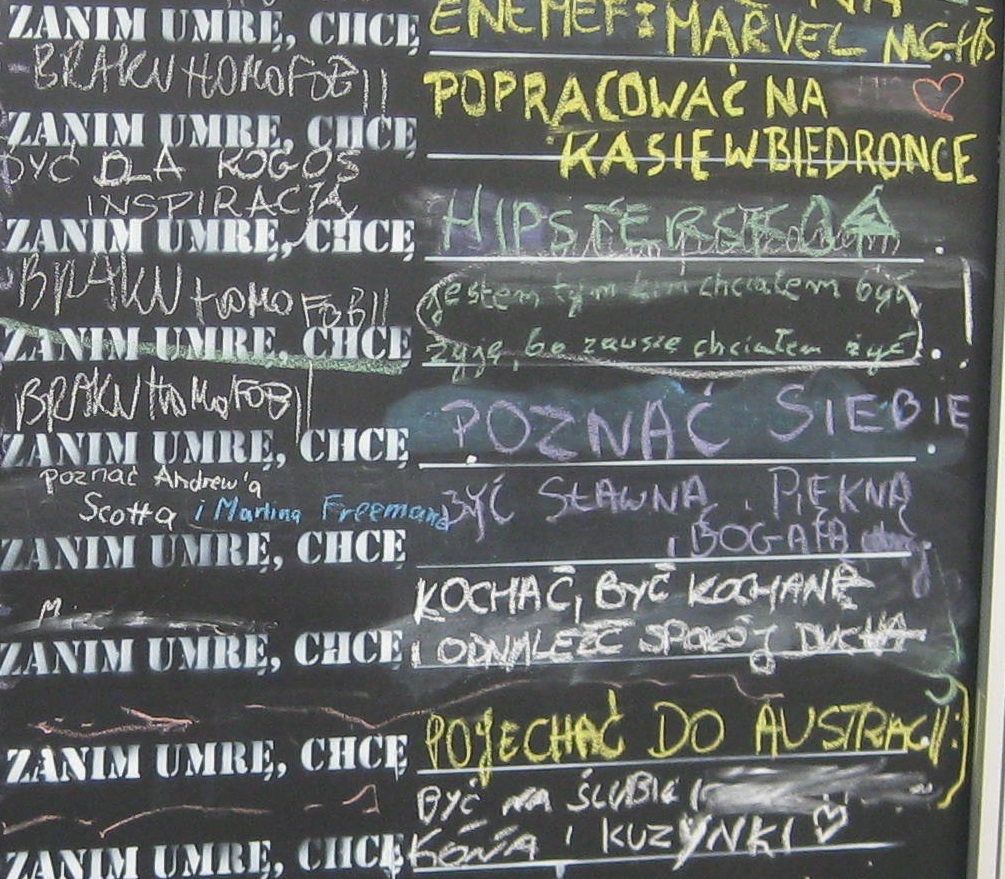 ZANIM UMRĘ, CHCĘ ENEMEF: MARVEL
BRAKU HOMOFOBII
ZANIM UMRĘ, CHCĘ POPRACOWAĆ NA
KASIĘ W BIEDRONCE
BYĆ DLA KOGOŚ
INSPIRACJĄ
ZANIM UMRĘ, CHCĘ
BRAKU HOMOFOBII
jestem tym kim chciałem być
ZANIM UMRĘ, CHCĘ żyję, bo zawsze chciałem żyć.
BRAKU HOMOFOBII
ZANIM UMRĘ, CHCĘ POZNAĆ SIEBIE
poznać Andrew'a
Scotta i Martina Freemana
BYĆ SŁAWNĄ, PIĘKNĄ
ZANIM UMRĘ, CHCĘ I BOGATĄ
KOCHAĆ, BYĆ KOCHANĄ
ZANIM UMRĘ, CHCĘ I ODNALEŹĆ SPOKÓJ DUCHA
ZANIM UMRĘ, CHCĘ POJECHAĆ DO AUSTRALII :)
BYĆ NA ŚLUBIE
ZANIM UMRĘ, CHCĘ I KUZYNKI